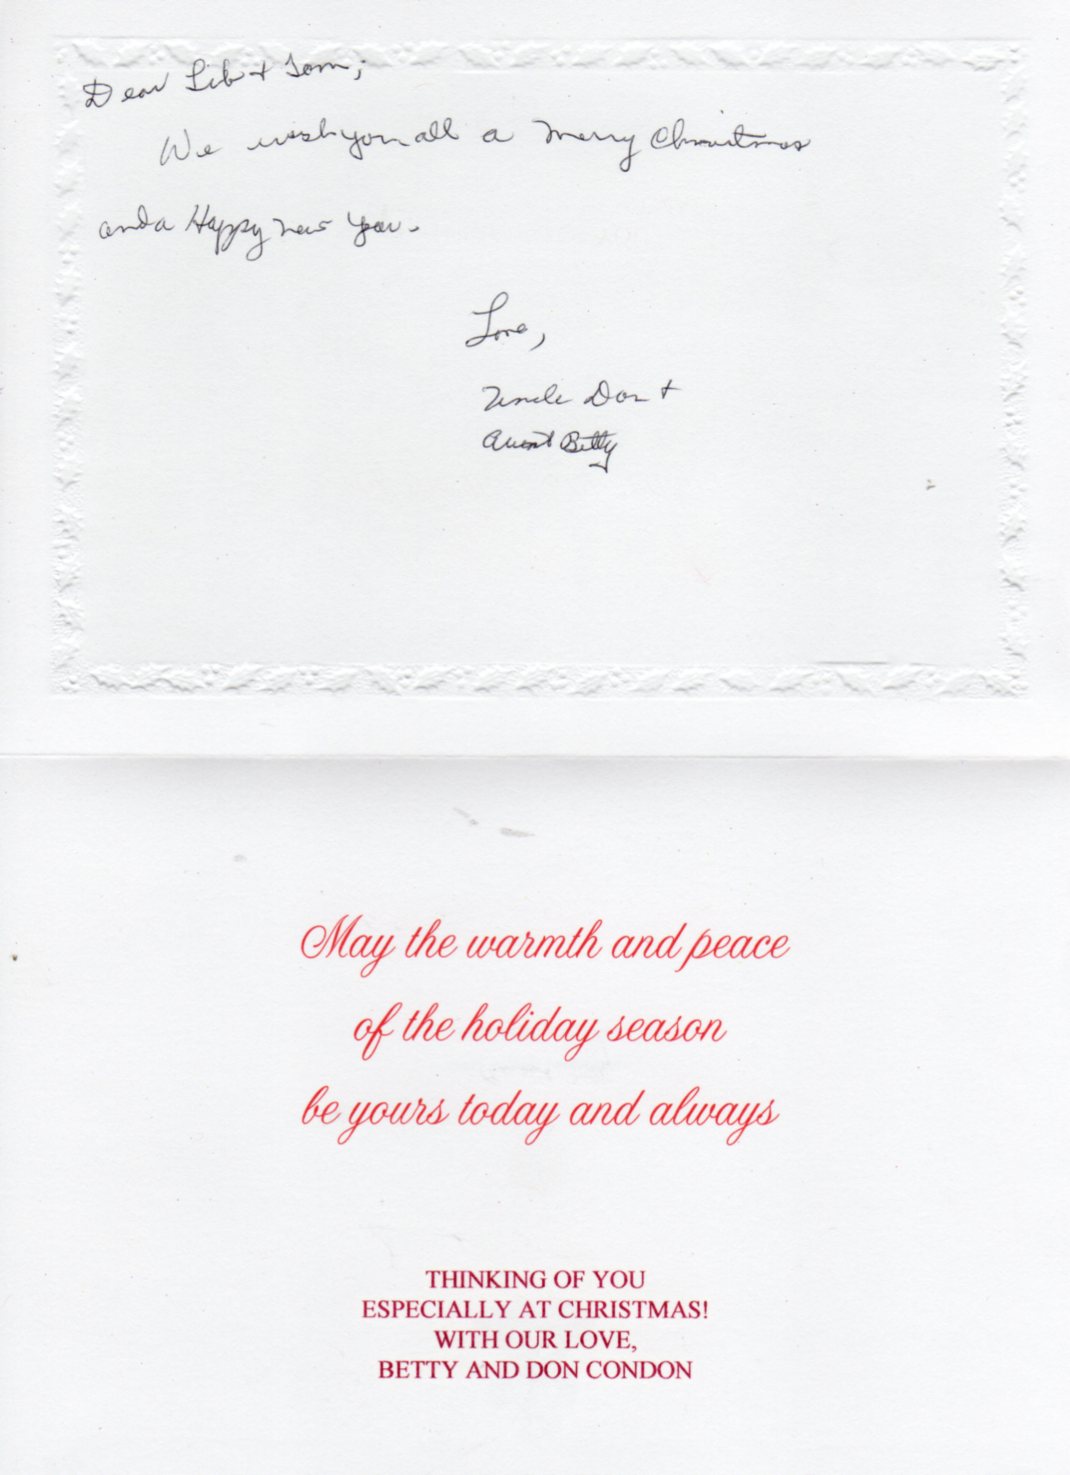 Dear Lib + Tom;
We wish you all a Merry Christmas
and a Happy New Year.
Love,
Uncle Don +
Aunt Betty
May the warmth and peace
of the holiday season
be yours today and always
THINKING OF YOU
ESPECIALLY AT CHRISTMAS!
WITH OUR LOVE,
BETTY AND DON CONDON